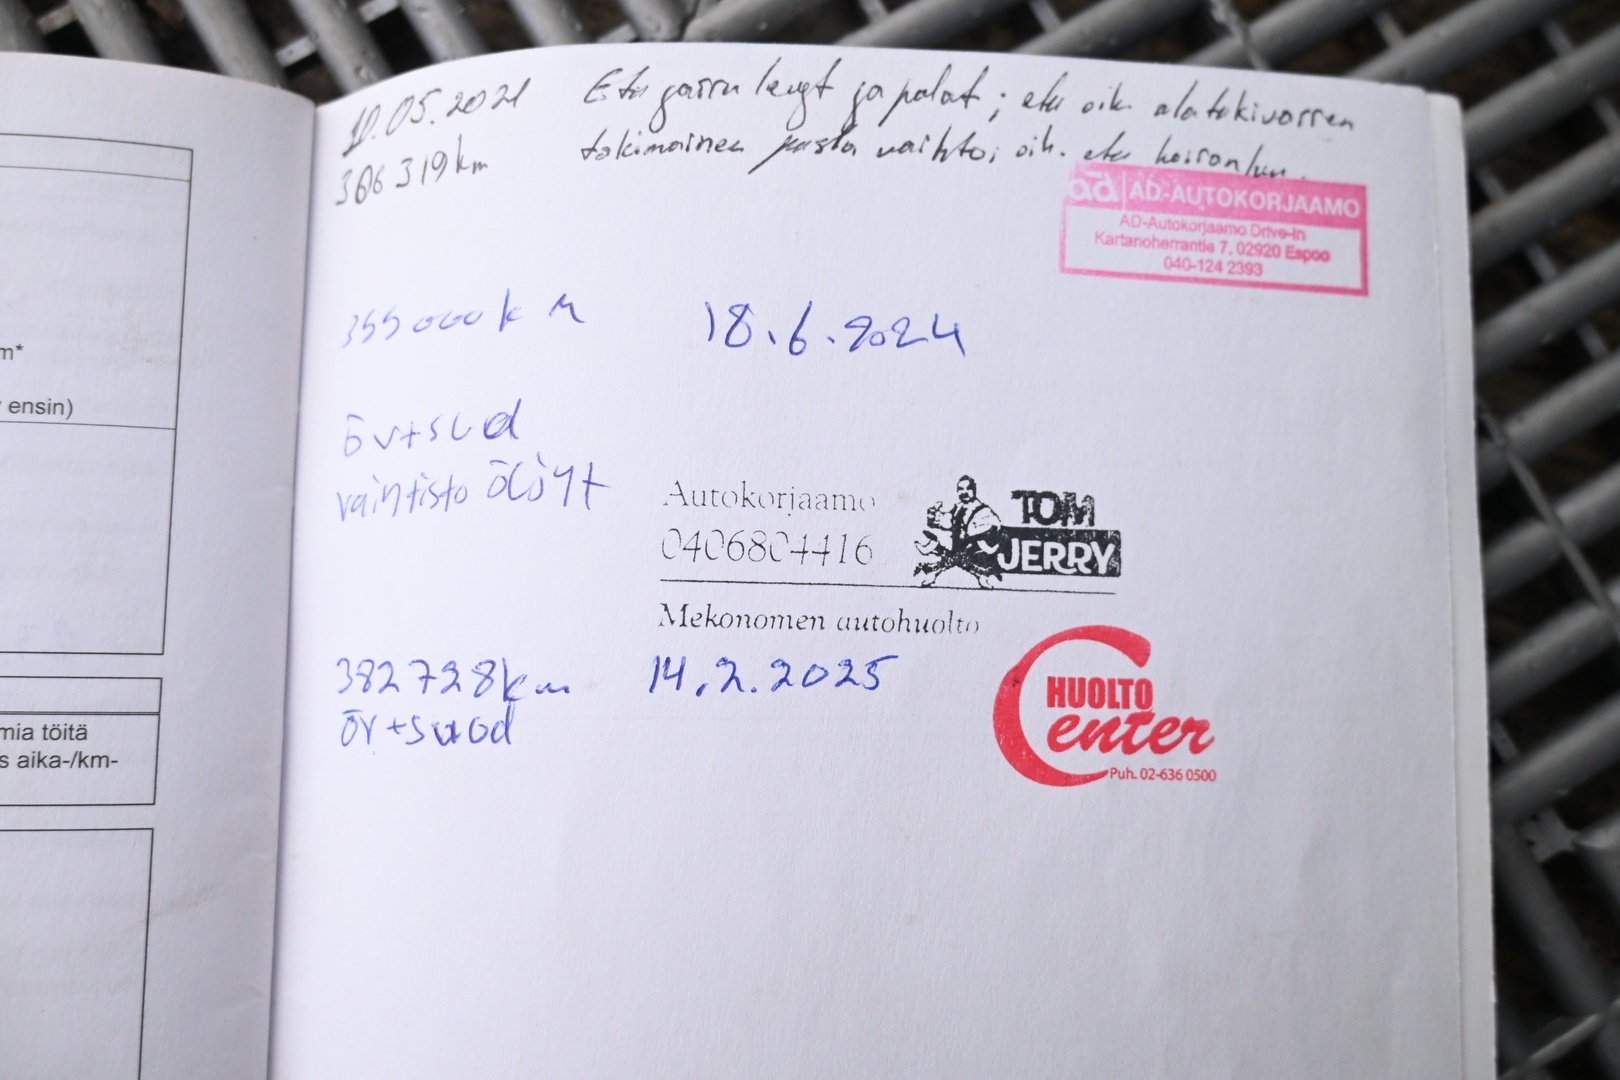 m*
ensin)
mia töitä
s aika-/km-
10.05.2021 Etu jarru levyt ja palat ; etu oik. alatukivarren
306 319 km tukimainen pusla vaihto; oik. etu koiranluu.
ad AD-AUTOKORJAAMO
AD-Autokorjaamo Drive-in
Kartanoherrantie 7, 02920 Espoo
040-124 2393
355 000 km 18.6.2024
öv+suod
vaihtisto öljyt
Autokorjaamo
0406804416
TOM
JERRY
Mekonomen autohuolto
382728km 14.2.2025
öv+suod
HUOLTO
Center
Puh. 02-636 0500